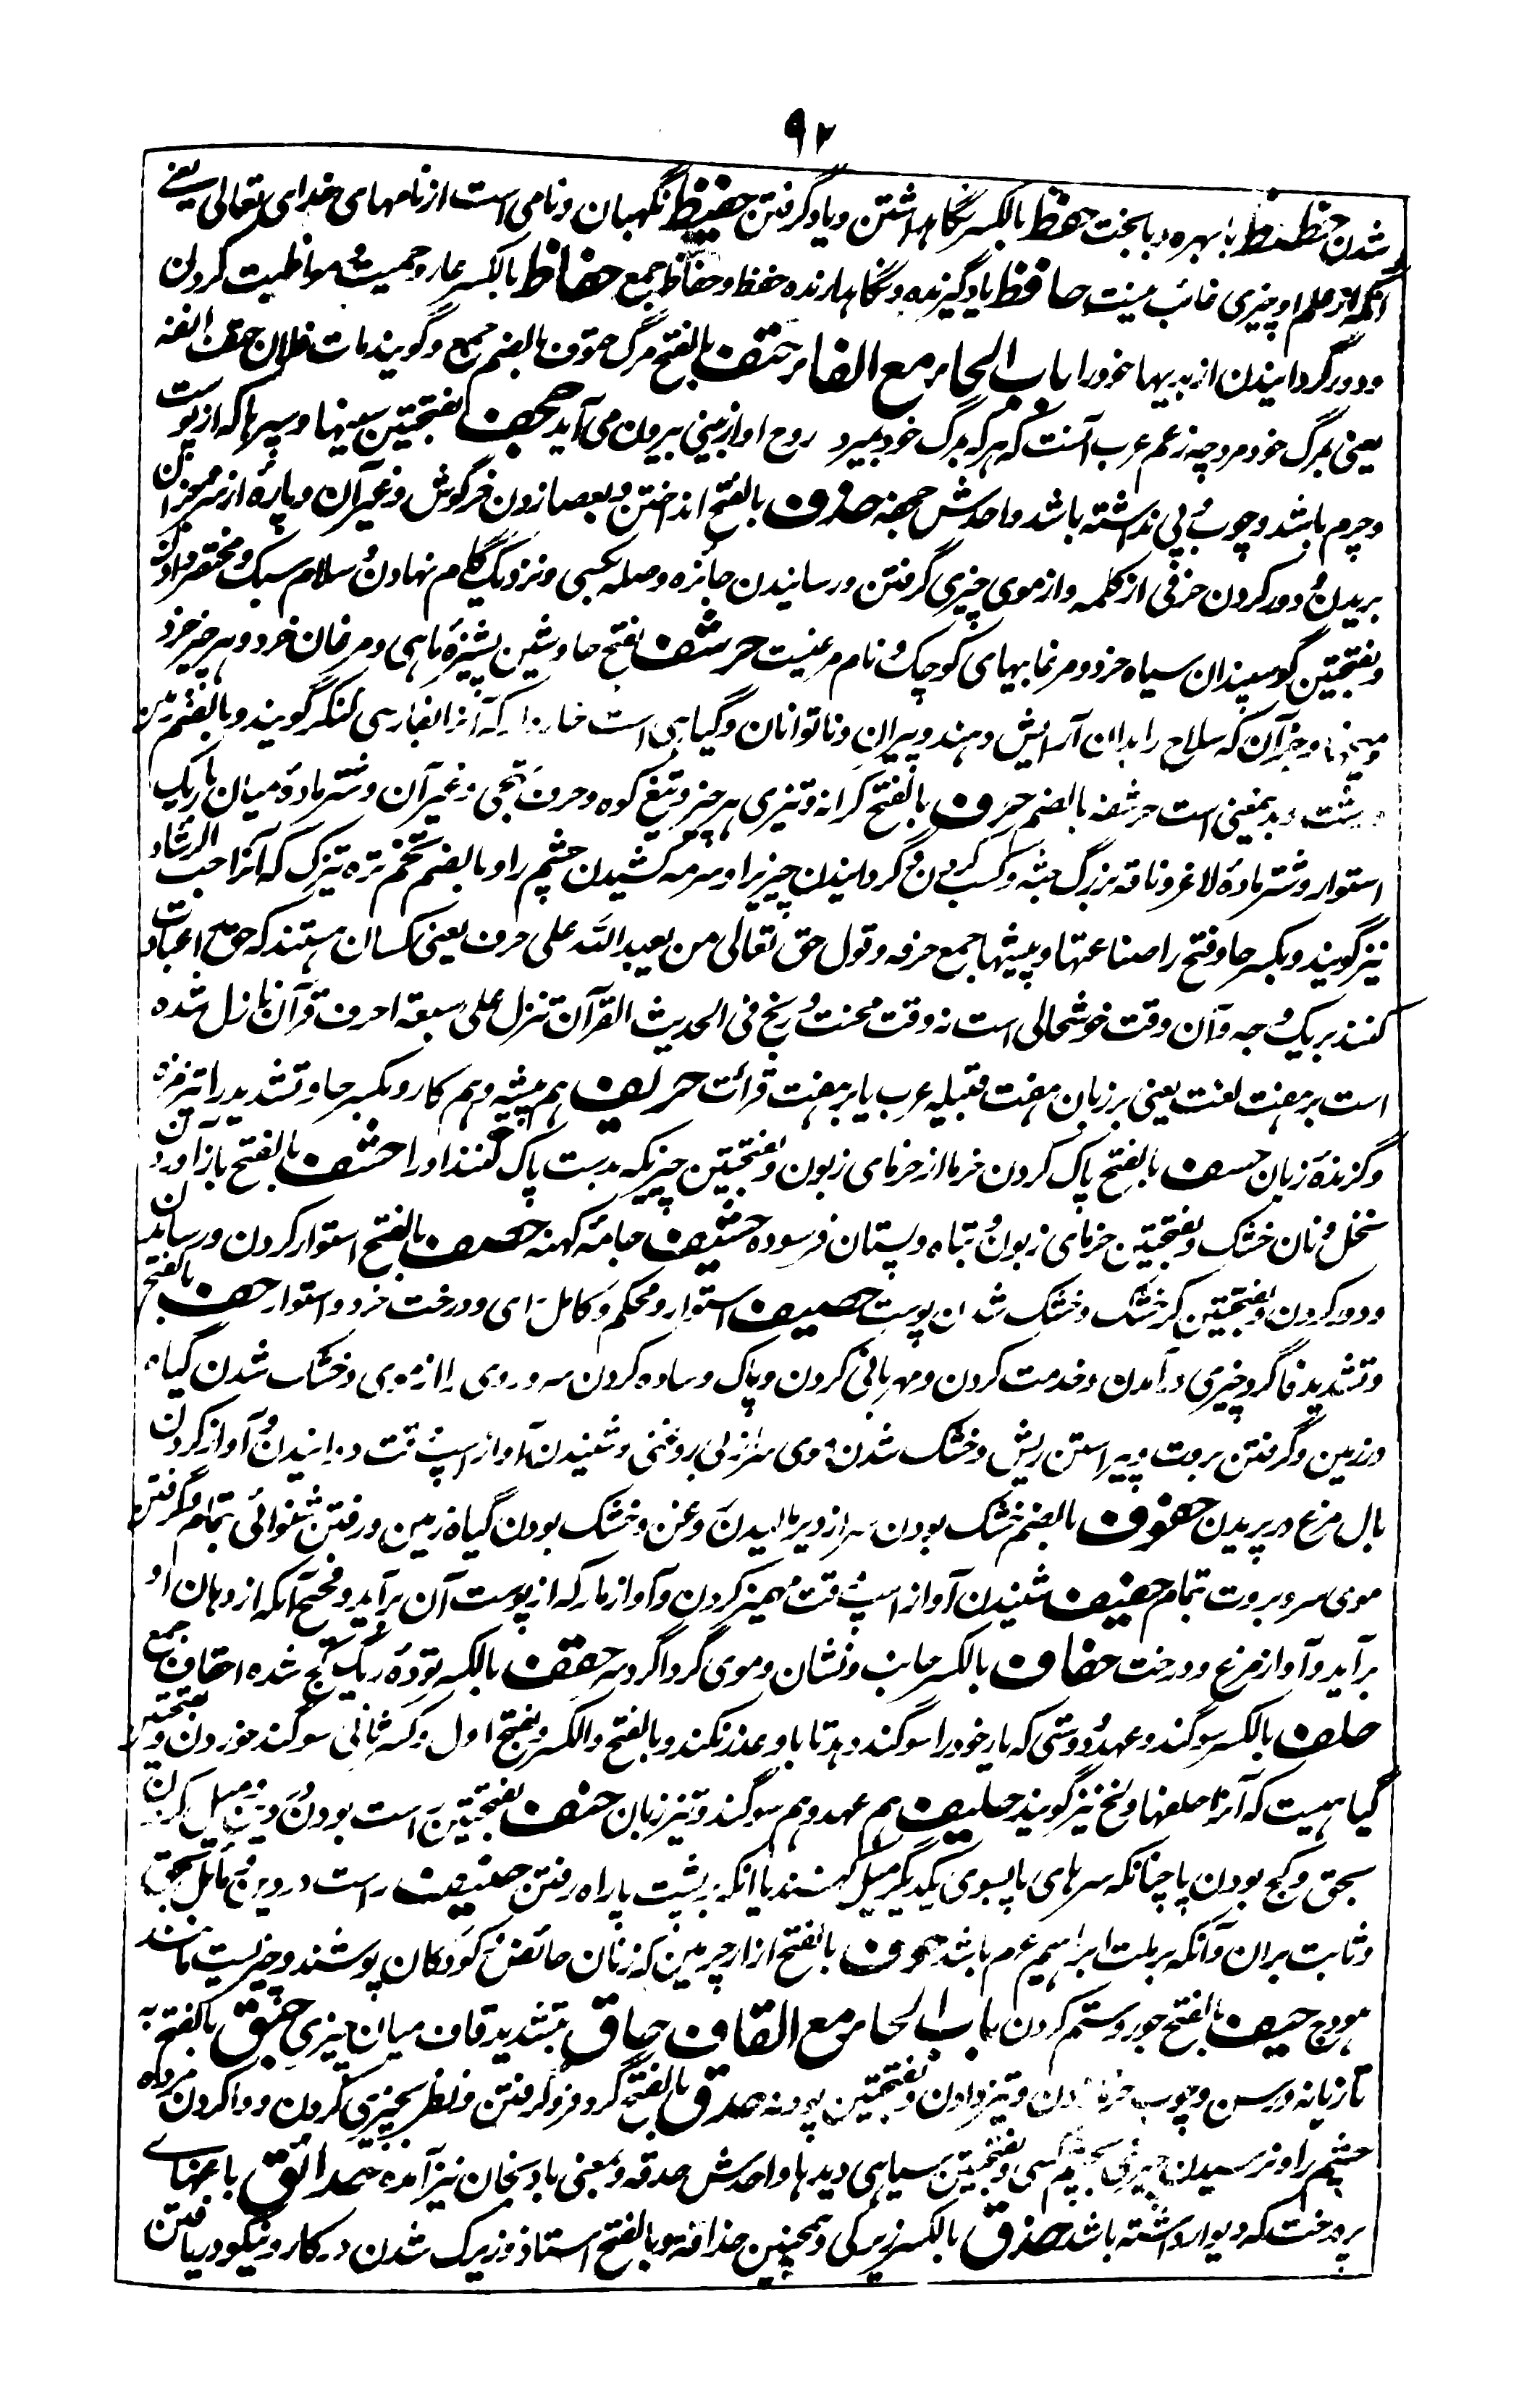 ۹۲
شدن حظیظ با بهره و با بخت حفظ بالکسر نگاهداشتن و یاد گرفتن حفیظ نگهبان و نامی است از نامهای خدای تعالی یعنے
آنکه از علم او چیزی غائب نیست حافظ یاد گیرنده و نگاهدارنده حفظ و حفاظ جمع حفاظ بالکسر عار و حمیت و مواظبت کردن
و دور گردانیدن از بدیها خود را باب الحاء مع الفاء حتف بالفتح مرگ حتوف بالضم جمع و گویند مات فلان حتف انفه
یعنی بمرگ خود مرد چه زعم عرب آنست که هر که بمرگ خود بمیرد روح او از بینی بیرون می آید حجف بفتحتین سینها و سپرها که از پوست
و چرم باشد و چوب و پی نداشته باشد واحدش حجفه حذف بالفتح انداختن و بعصا زدن خرگوش و غیر آن و پاره از سر چیزی
بریدن و دور کردن حرفی از کلمه و از موی چیزی گرفتن و رسانیدن جائزه و صله بکسی و نزدیک گام نهادن و سلام سبک و مختصر دادن
و بفتحتین گوسپندان سیاه خرد و مرغابیهای کوچک و نام مرغیست حرشف بفتح حا و شین پشیزۀ ماهی و مرغان خرد و هر چیز خرد
و میخها و جز آن که سلاح را بدان آرایش دهند و پیران و ناتوانان و گیاهی است خاردار که آنرا بفارسی کنگر گویند و بالضم زمین
درشت و بدین معنی است حرشفه بالضم حرف بالفتح کرانه و تیزی هر چیز و تیغ کوه و حرف تهجی و غیر آن و شتر مادۀ میان باریک
استوار و شتر مادۀ لاغر و ناقه بزرگ جثه و کسب کردن و گردانیدن چیزیرا و سرمه کشیدن چشم را و بالضم تخم تره تیزک که آنرا حب الرشاد
نیز گویند و بکسر حا و فتح را صناعتها و پیشها جمع حرفه و قول حق تعالی من یعبد الله علی حرف یعنی کسان هستند که حق را عبادت
کنند بر یک وجه و آن وقت خوشحالی است نه وقت محنت و رنج فی الحدیث القرآن تنزل علی سبعة احرف قرآن نازل شده
است بر هفت لغت یعنی بر زبان هفت قبیله عرب یا بر هفت قرائت حریف هم پیشه و هم کار و بکسر حا و تشدید را تیز مزه
و گزندۀ زبان حسف بالفتح پاک کردن خرما از خرمای زبون و بفتحتین چیزیکه بدست پاک کنند او را حشف بالفتح باز آوردن
نخل و نان خشک و بفتحتین خرمای زبون و تباه و پستان فرسوده حشیف جامۀ کهنه حصف بالفتح استوار کردن و رسانیدن
و دور کردن و بفتحتین گر خشک و خشک شدن پوست حصیف استوار و محکم و کامل رای و درخت خرد و استوار حف بالفتح
و تشدید فا گرد چیزی درآمدن و خدمت کردن و مهربانی کردن و پاک و ساده کردن سر و روی را از موی و خشک شدن گیاه
در زمین و گرفتن بروت و پیراستن ریش و خشک شدن موی سر از بی روغنی و شنیدن آواز اسپ وقت دوانیدن و آواز کردن
بال مرغ در پریدن حفوف بالضم خشک بودن سر از دیر مالیدن روغن و خشک بودن گیاه زمین و رفتن شنوائی تمام و گرفتن
موی سر و بروت تمام حفیف شنیدن آواز اسپ وقت مهمیز کردن و آواز مار که از پوست آن برآید و فحیح آنکه از دهان او
برآید و آواز مرغ و درخت حفاف بالکسر جانب و نشان و موی گرداگرد سر حقف بالکسر تودۀ ریگ کج شده احقاف جمع
حلف بالکسر سوگند و عهد و دوستی که یار خود را سوگند دهد تا با و عذر نکند و بالفتح و الکسر و بفتح اول و کسر ثانی سوگند خوردن و بفتحتین
گیاهیست که آنرا حلفا و لخ نیز گویند حلیف هم عهد و هم سوگند و تیز زبان حنف بفتحتین راست بودن در دین و میل کردن
بحق و کج بودن پا چنانکه سرهای پا بسوی یکدیگر میل کنند یا آنکه بر پشت پا راه رفتن حنیف راست در دین و مائل بحق
و ثابت بران و آنکه بر ملت ابراهیم عم باشد حوف بالفتح ازار چرمین که زنان حائض و کودکان پوشند و چیزیست مانند
هودج حیف بالفتح جور و ستم کردن باب الحاء مع القاف حاق بتشدید قاف میان چیزی حبق بالفتح به
تازیانه و رسن و چوب زدن و تیز دادن و بفتحتین پودنه حدق بالفتح گرد فرو گرفتن و نظر بچیزی کردن و وا کردن مرده
چشم را و نرسیدن چیزی بچشم کسی و بفتحتین سیاهی دیدها واحدش حدقه و بمعنی بادنجان نیز آمده حدائق باغهای
پر درخت که دیوار داشته باشد حذق بالکسر زیرکی و همچنین حذاقه و بالفتح استاد و زیرک شدن در کار و نیکو دریافتن